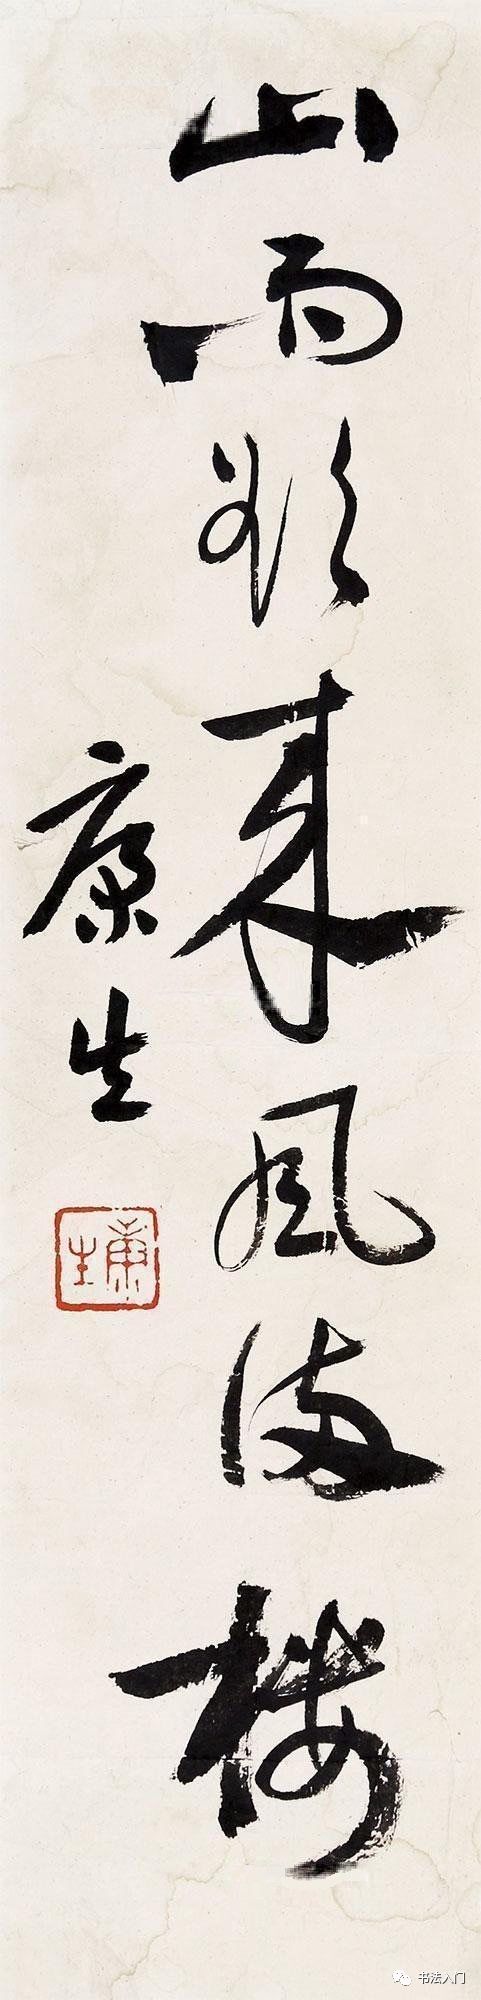 山雨欲来风满楼
康生
康生
书法入门